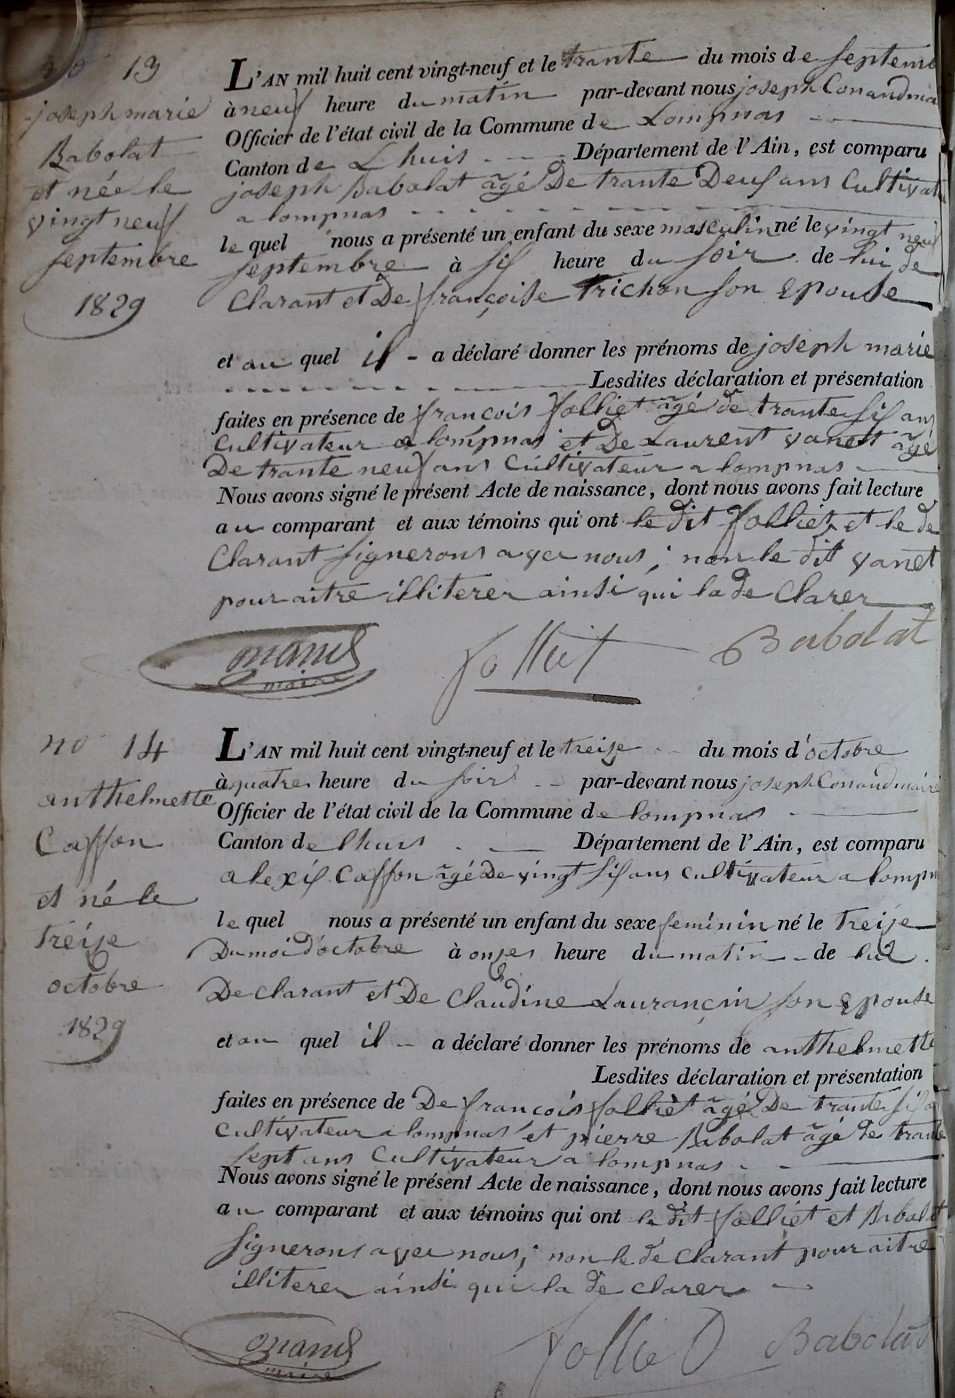 no 13
joseph marie
Babolat
et née le
vingt neuf
septembre
1829
L'AN mil huit cent vingt-neuf et le trante du mois de septemb
à neuf heure du matin par-devant nous joseph Conand maire
Officier de l'état civil de la Commune de Lompnas
Canton de Lhuis Département de l'Ain, est comparu
joseph Babolat âgé De trante Deux ans Cultivat
a lompnas
le quel nous a présenté un enfant du sexe masculin né le vingt neuf
septembre à six heure du soir de lui de
Clarant et De françoise Trichon son Epouse
et au quel il a déclaré donner les prénoms de joseph marie
Lesdites déclaration et présentation
faites en présence de françois folliet âgé de trante six ans
Cultivateur a lompnas et De Laurent vanet âgé
De trante neuf ans Cultivateur a lompnas
Nous avons signé le présent Acte de naissance, dont nous avons fait lecture
au comparant et aux témoins qui ont le dit folliet et le de
Clarant signerons avec nous; non le dit vanet
pour aitre illiterer ainsi qui la de Clarer
Conand
maire
folliet
Babolat
no 14
anthelmette
Caffon
et né le
treize
octobre
1829
L'AN mil huit cent vingt-neuf et le treize du mois d'octobre
à quatre heure du soir par-devant nous joseph Conand maire
Officier de l'état civil de la Commune de lompnas
Canton de lhuis Département de l'Ain, est comparu
alexis Caffon âgé De vingt six ans Cultivateur a lompn
le quel nous a présenté un enfant du sexe feminin né le treize
Du moi d'octobre à onzes heure du matin de lui
De Clarant et De Claudine Laurançin son Epouse
et au quel il a déclaré donner les prénoms de anthelmette
Lesdites déclaration et présentation
faites en présence de De françois folliet âgé De trante six a
Cultivateur a lompnas et pierre Babolat âgé de trante
sept ans Cultivateur a lompnas
Nous avons signé le présent Acte de naissance, dont nous avons fait lecture
au comparant et aux témoins qui ont le dit folliet et Babolat
signerons avec nous; non le de Clarant pour aitre
illiterer ainsi qui la de clarer
Conand
maire
folliet
Babolat